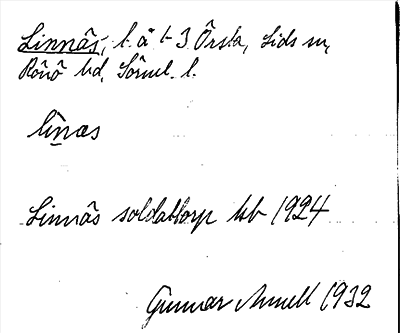 Linnäs, l. å t 3 Örsta, Lids sn,
Rönö hd, Sörml. l.
linas
Linnäs soldattorp kb 1924
Gunnar Amell 1932